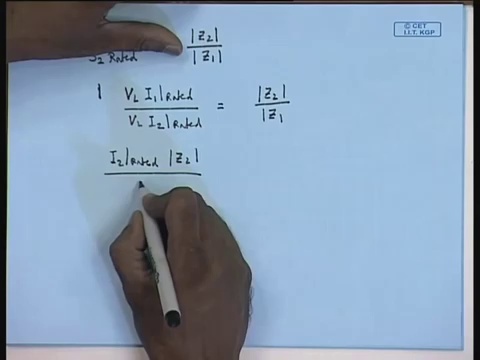 © CET
I.I.T. KGP
Rated |Z2| / |Z1|
VL I1|Rated / VL I2|Rated = |Z2| / |Z1
I2|Rated |Z2|